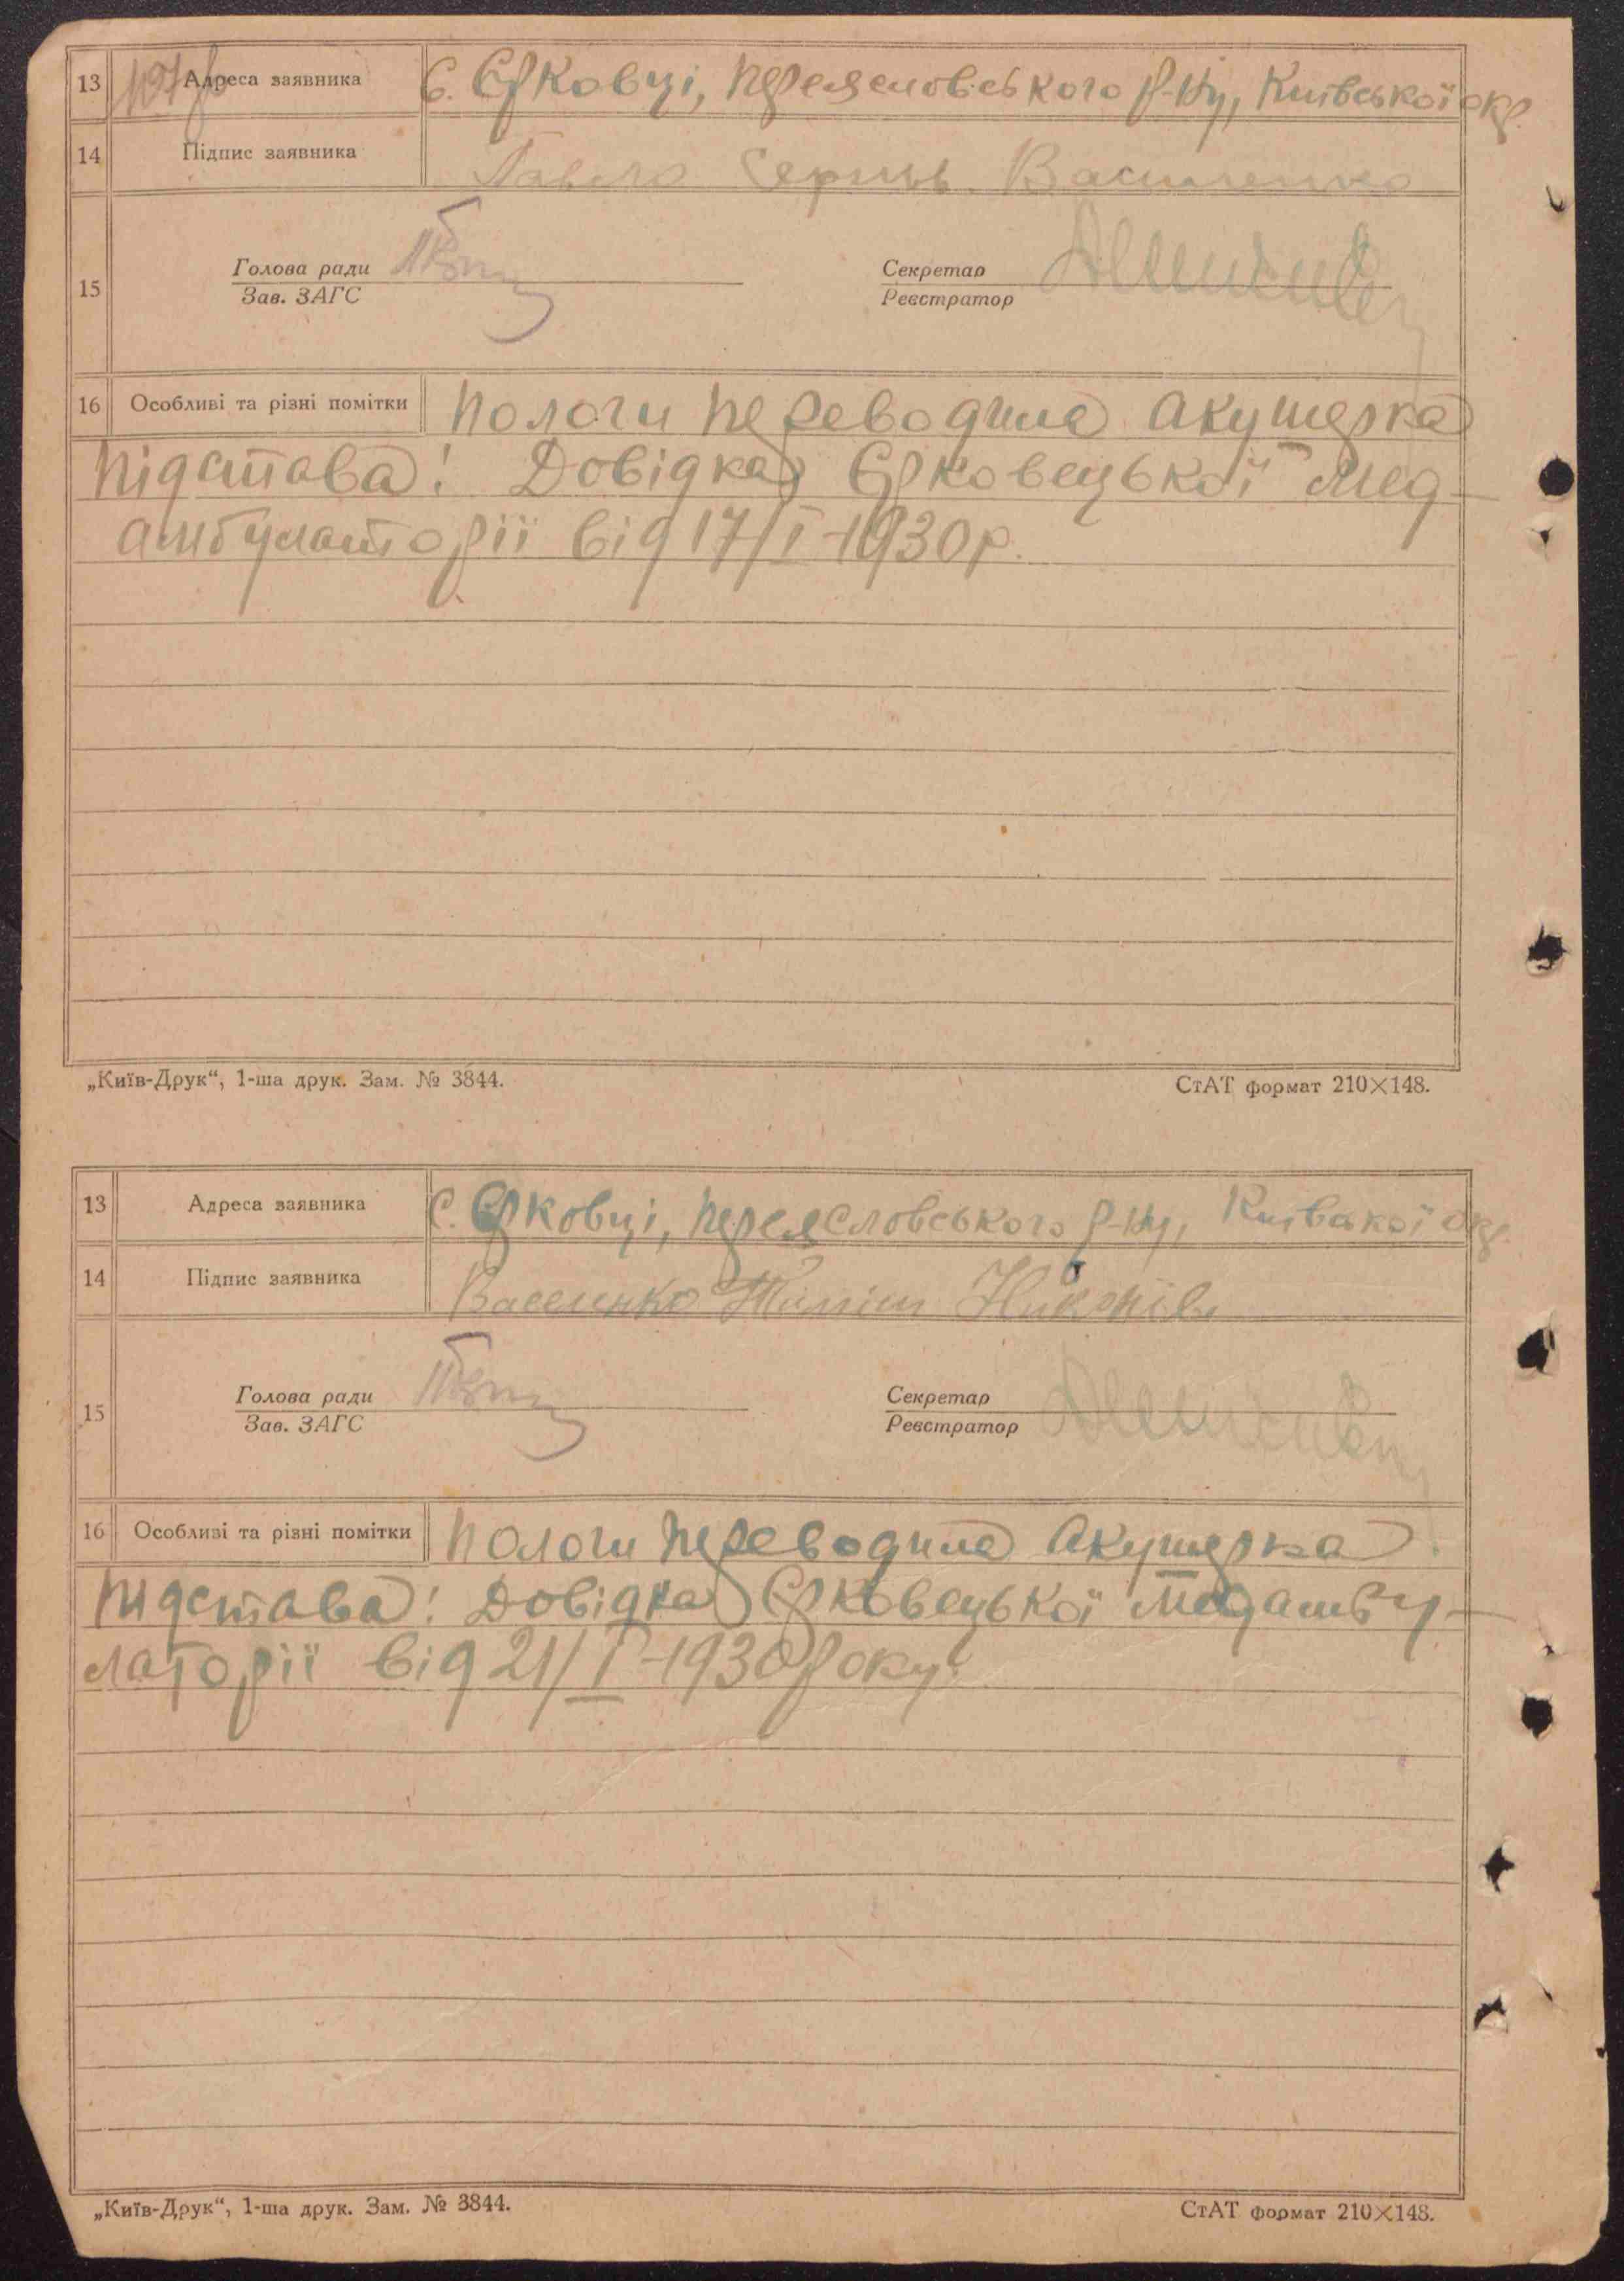 13 Адреса заявника с. Єрковці, Переяславського р-ну, Київської окр.
14 Підпис заявника Павло Василенко
15 Голова ради Секретар
Зав. ЗАГС Реєстратор
16 Особливі та різні помітки Пологи переводила акушерка
підстава: Довідка Єрковецької мед-
амбулаторії від 17/I-1930 р.
„Київ-Друк“, 1-ша друк. Зам. № 3844. СтАТ формат 210×148.
13 Адреса заявника с. Єрковці, Переясловського р-ну, Київської окр.
14 Підпис заявника
15 Голова ради Секретар
Зав. ЗАГС Реєстратор
16 Особливі та різні помітки Пологи переводила акушерка.
підстава: Довідка Єрковецької медамбу-
латорії від 21/I-1930 року.
„Київ-Друк“, 1-ша друк. Зам. № 3844. СтАТ формат 210×148.